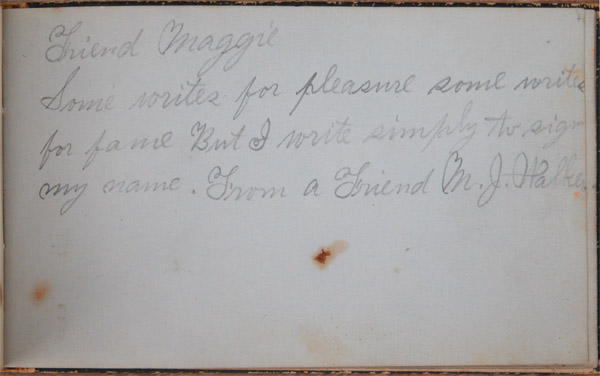 Friend Maggie
Some writes for pleasure some writes
for fame But I write simply to sign
my name. From a Friend M. J. Walker